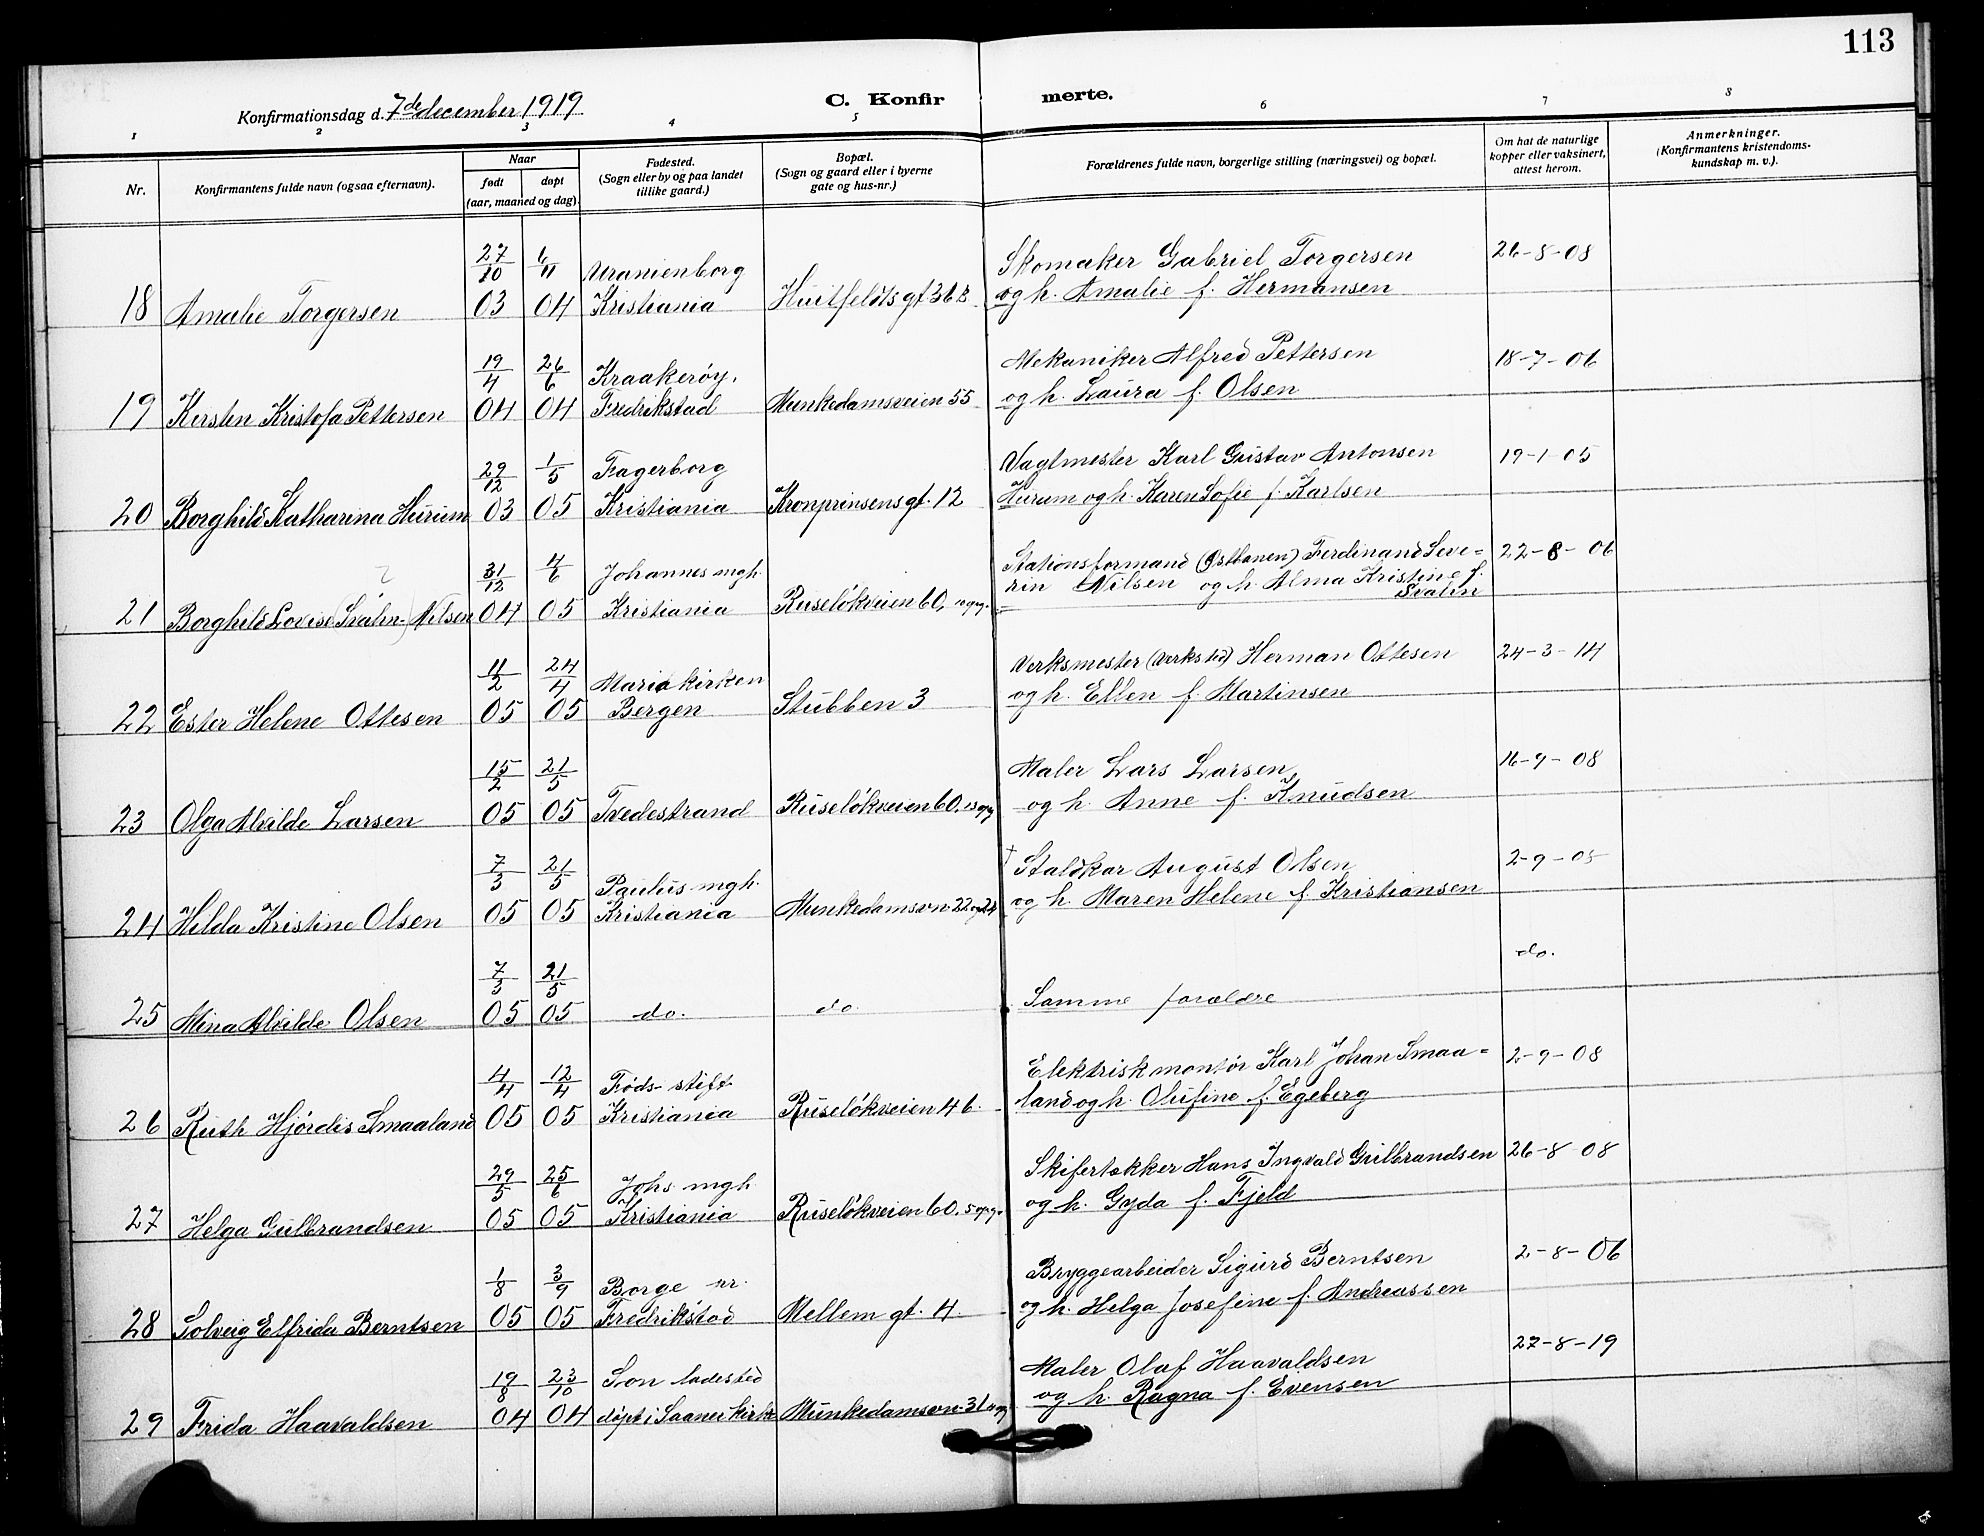 113
Konfirmationsdag d. 7de december 1919
C. Konfirmerte.
1 2 3 4 5 6 7 8
Nr.
Konfirmantens fulde navn (ogsaa efternavn).
Naar
født døpt
(aar, maaned og dag).
Fødested.
(Sogn eller by og paa landet
tillike gaard.)
Bopæl.
(Sogn og gaard eller i byerne
gate og hus-nr.)
Forældrenes fulde navn, borgerlige stilling (næringsvei) og bopæl.
Om hat de naturlige
kopper eller vaksinert,
attest herom.
Anmerkninger.
(Konfirmantens kristendoms-
kundskap m. v.).
27/10 6/11 Uranienborg Skomaker Gabriel Torgersen 26-8-08
18 Amalie Torgersen 03 04 Kristiania Huitfeldts gt 36 B og h. Amalie f. Hermansen
19/4 26/6 Kraakerøy, Mekaniker Alfred Pettersen 18-7-06
19 Kirsten Kristofa Pettersen 04 04 Fredrikstad Munkedamsveien 55 og h. Laura f. Olsen
29/12 1/5 Fagerborg Vagtmester Karl Gustav Antonsen 19-1-05
20 Borghild Katharina Hurum 03 05 Kristiania Kronprinsens gt. 12 Hurum og h. Karen Sofie f. Karlsen
31/12 4/6 Johannes mgh. Stationsformand (Østbanen) Ferdinand Seve= 22-8-06
rin Nilsen og h. Alma Kristine f.
Svalin
21 Borghild Lovise (Svalin-) Nilsen 04 05 Kristiania Ruseløkveien 60, opg.
11/2 24/4 Mariakirken Verksmester (Verksted) Herman Ottesen 24-3-14
22 Ester Helene Ottesen 05 05 Bergen Stubben 3 og h. Ellen f. Martinsen
15/2 21/5 Maler Lars Larsen 16-9-08
23 Olga Alvilde Larsen 05 05 Tvedestrand Ruseløkveien 60, opg og h. Anne f. Knudsen
7/3 21/5 Paulus mgh. † Staldkar August Olsen 2-9-08
24 Helda Kristine Olsen 05 05 Kristiania Munkedamsvn 22 og 24 og h. Maren Helene f. Kristiansen
7/3 21/5 do.
25 Mina Alvilde Olsen 05 05 do. do. Samme forældre
4/4 12/4 Føds-stift. Elektrisk montør Karl Johan Smaa= 2-9-08
26 Ruth Hjørdis Smaaland 05 05 Kristiania Ruseløkveien 46. land og h. Olufine f. Egeberg
29/5 25/6 Johs mgh Skifertækker Hans Ingvald Gulbrandsen 26-8-08
27 Helga Gulbrandsen 05 05 Kristiania Ruseløkveien 60, 5 opg. og h. Gyda f. Fjeld
1/8 3/9 Borge nr. Bryggearbeider Sigurd Berntsen 2-8-06
28 Solveig Elfrida Berntsen 05 05 Fredrikstad Mellem gt. 4. og h. Helga Josefine f. Andreassen
19/8 23/10 Son ladested Maler Olaf Haavaldsen 27-8-19
29 Frida Haavaldsen 04 04 døpt i Saaner kirke Munkedamsvn 31 opg og h. Ragna f. Evensen